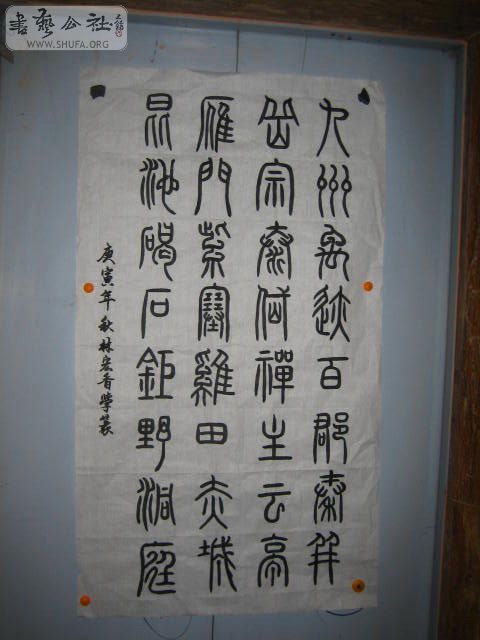 九州禹迹百郡秦并
岳宗泰岱禪主云亭
雁門紫塞雞田赤城
昆池碣石鉅野洞庭
庚寅年秋林宏香學篆
書藝公社
WWW.SHUFA.ORG